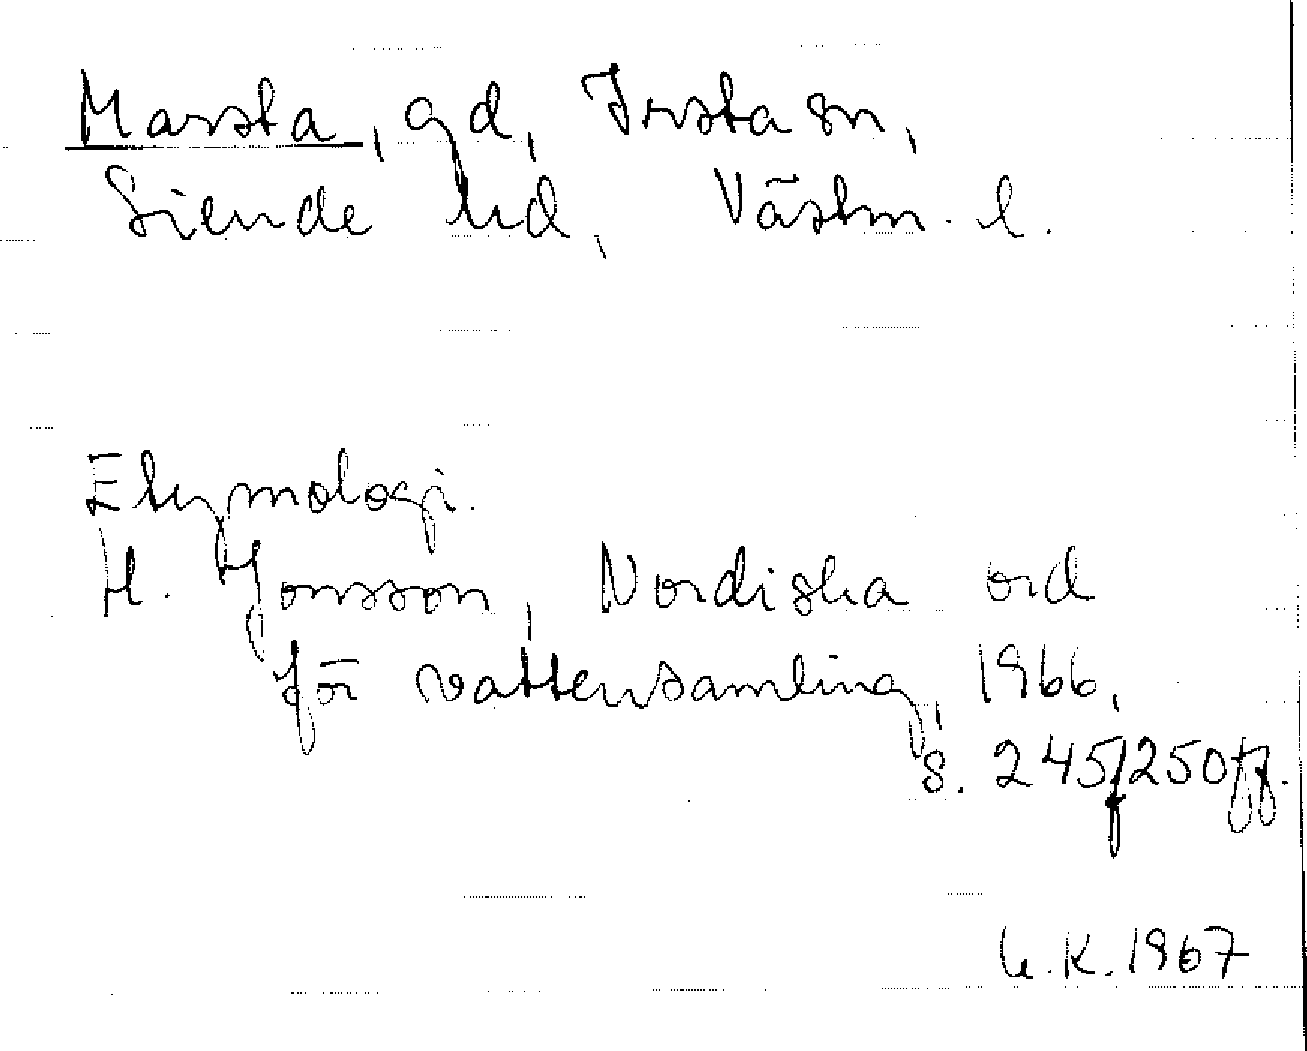 Marsta, gd, Irsta sn,
Siende hd, Västm. l.
Etymologi.
H. Jonsson, Nordiska ord
för vattensamling, 1966,
s. 245f, 250ff.
U.K. 1967